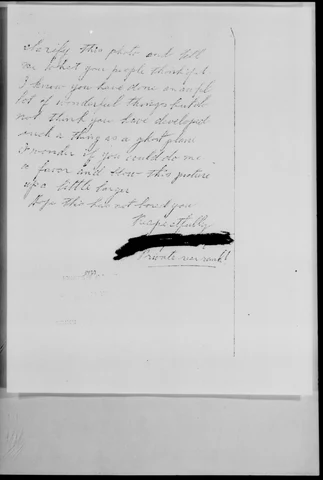 Clarify this photo and tell
me what you people think of it
I know you have done an awful
lot of wonderful things but do
not think you have developed
such a thing as a ghost plane
I wonder if you could do me
a favor and blow this picture
up a little larger
Hope this has not bored you
Respectfully
Private